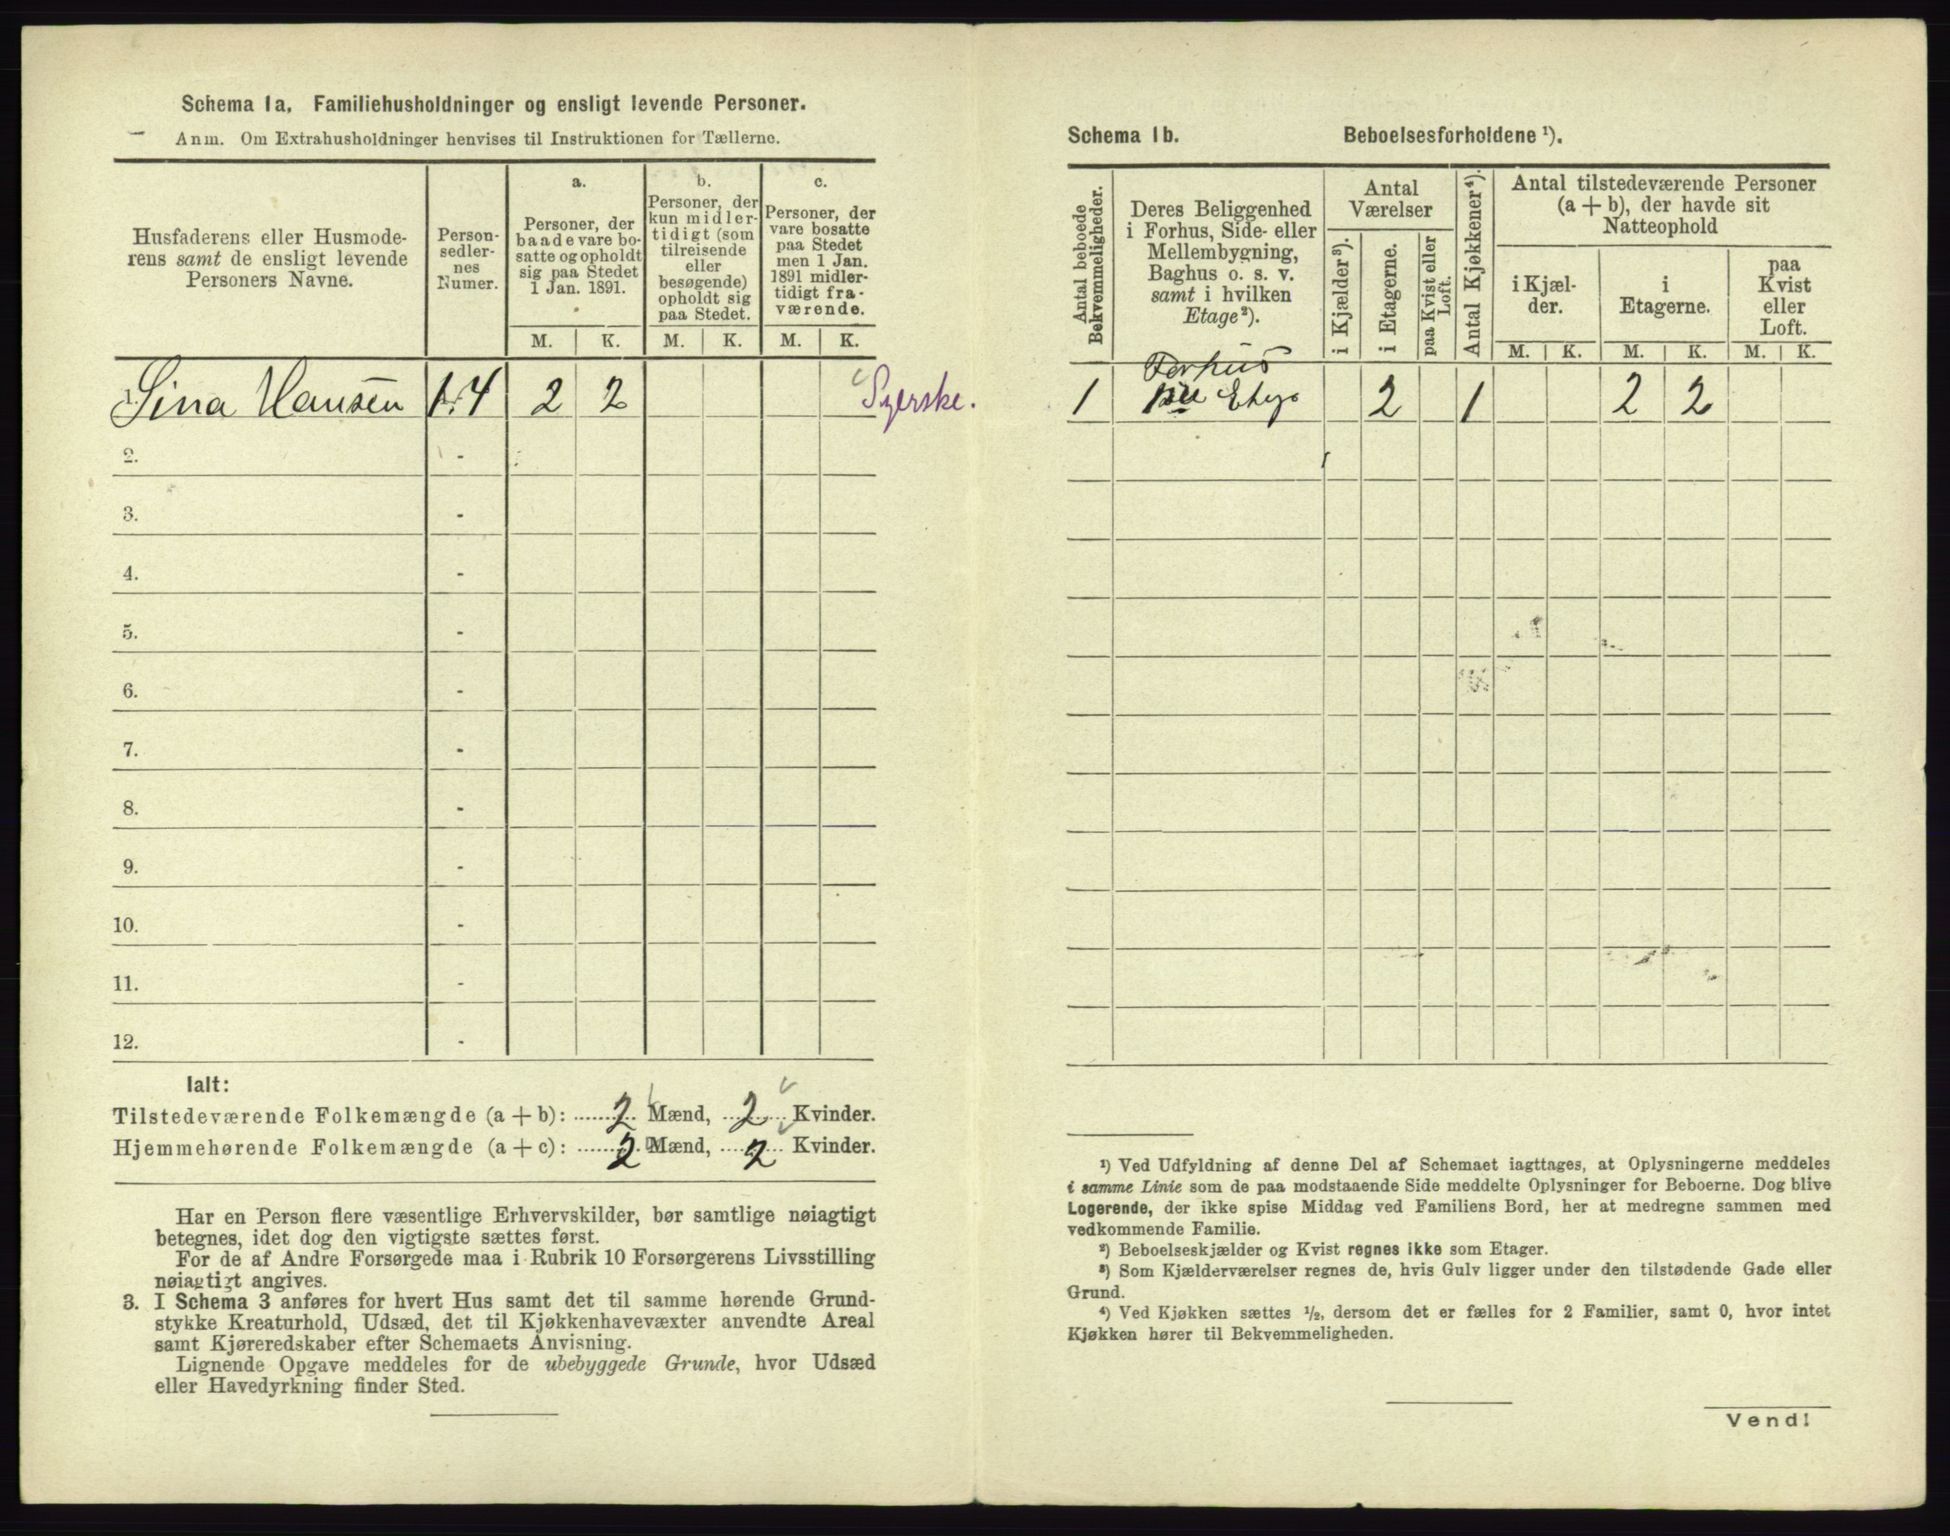 Schema 1a. Familiehusholdninger og ensligt levende Personer.
Anm. Om Extrahusholdninger henvises til Instruktionen for Tællerne.
Husfaderens eller Husmode-
rens samt de ensligt levende
Personers Navne.
Person-
sedler-
nes
Numer.
a.
Personer, der
baade vare bo-
satte og opholdt
sig paa Stedet
1 Jan. 1891.
b.
Personer, der
kun midler-
tidigt (som
tilreisende
eller
besøgende)
opholdt sig
paa Stedet.
c.
Personer, der
vare bosatte
paa Stedet
men 1 Jan.
1891 midler-
tidigt fra-
værende.
M. K. M. K. M. K.
1. Sina Hansen 1-4 2 2 Syerske.
2. -
3. -
4. -
5. -
6. -
7. -
8. -
9. -
10. -
11. -
12. -
Ialt:
Tilstedeværende Folkemængde (a + b): 2 Mænd, 2 Kvinder.
Hjemmehørende Folkemængde (a + c): 2 Mænd, 2 Kvinder.
Har en Person flere væsentlige Erhvervskilder, bør samtlige nøiagtigt
betegnes, idet dog den vigtigste sættes først.
For de af Andre Forsørgede maa i Rubrik 10 Forsørgerens Livsstilling
nøiagtigt angives.
3. I Schema 3 anføres for hvert Hus samt det til samme hørende Grund-
stykke Kreaturhold, Udsæd, det til Kjøkkenhavevæxter anvendte Areal
samt Kjøreredskaber efter Schemaets Anvisning.
Lignende Opgave meddeles for de ubebyggede Grunde, hvor Udsæd
eller Havedyrkning finder Sted.
Schema 1b. Beboelsesforholdene ¹).
Antal beboede
Bekvemmeligheder.
Deres Beliggenhed
i Forhus, Side- eller
Mellembygning,
Baghus o. s. v.
samt i hvilken
Etage²).
Antal
Værelser
i Kjælder³).
i Etagerne.
paa Kvist eller
Loft.
Antal Kjøkkener⁴).
Antal tilstedeværende Personer
(a + b), der havde sit
Natteophold
i Kjæl-
der.
i
Etagerne.
paa
Kvist
eller
Loft.
M. K. M. K. M. K.
Forhus
1 1ste 2 1 2 2
¹) Ved Udfyldning af denne Del af Schemaet iagttages, at Oplysningerne meddeles
i samme Linie som de paa modstaaende Side meddelte Oplysninger for Beboerne. Dog blive
Logerende, der ikke spise Middag ved Familiens Bord, her at medregne sammen med
vedkommende Familie.
²) Beboelseskjælder og Kvist regnes ikke som Etager.
³) Som Kjælderværelser regnes de, hvis Gulv ligger under den tilstødende Gade eller
Grund.
⁴) Ved Kjøkken sættes ½, dersom det er fælles for 2 Familier, samt 0, hvor intet
Kjøkken hører til Bekvemmeligheden.
Vend!